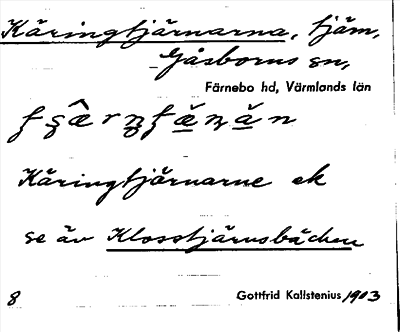 Käringtjärnarna, tjäm,
Gåsborns sn,
Färnebo hd, Värmlands län
Käringtjärnarne ek
se äv Klosstjärnsbäcken
8 Gottfrid Kallstenius 1903